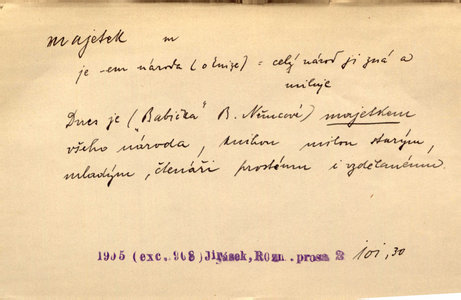 majetek m
je -em národa (o knize) = celý národ ji zná a
miluje
Dnes je („Babička“ B. Němcové) majetkem
všeho národa, knihou milou starým,
mladým, čtenáři prostému i vzdělanému.
1905 (exc. 968) Jirásek, Rozn. prosa 2 101,30